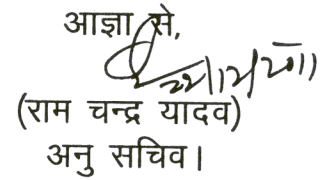 आज्ञा से,
(राम चन्द्र यादव)
अनु सचिव।